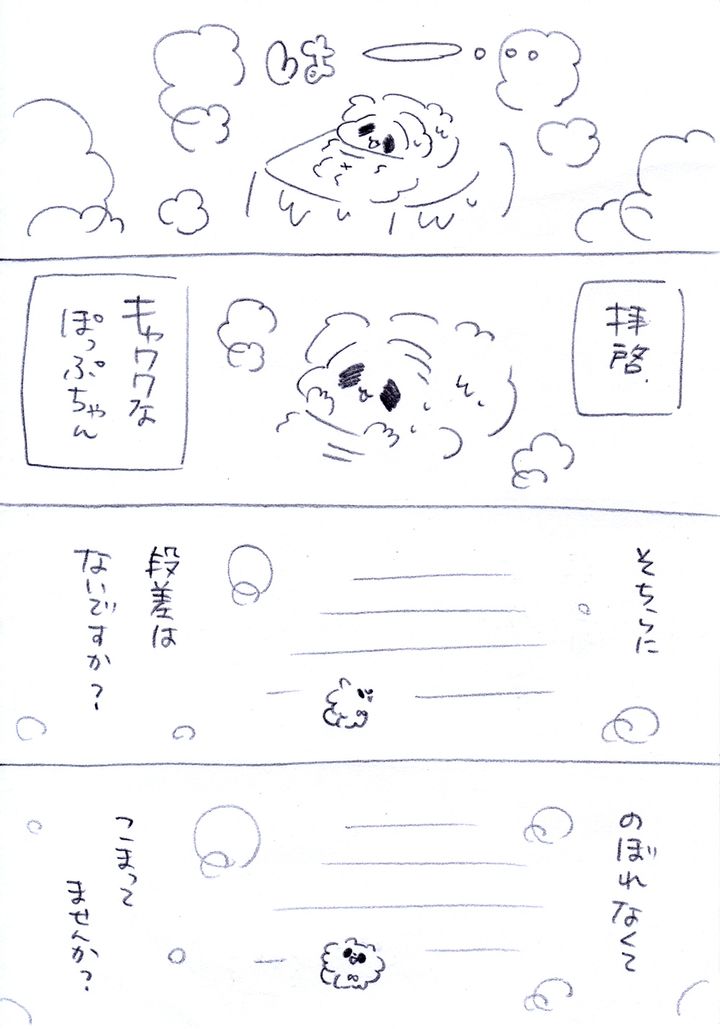 拝啓.
キャワワな
ぽっぷちゃん
そちらに
段差は
ないですか?
のぼれなくて
こまって
ませんか?